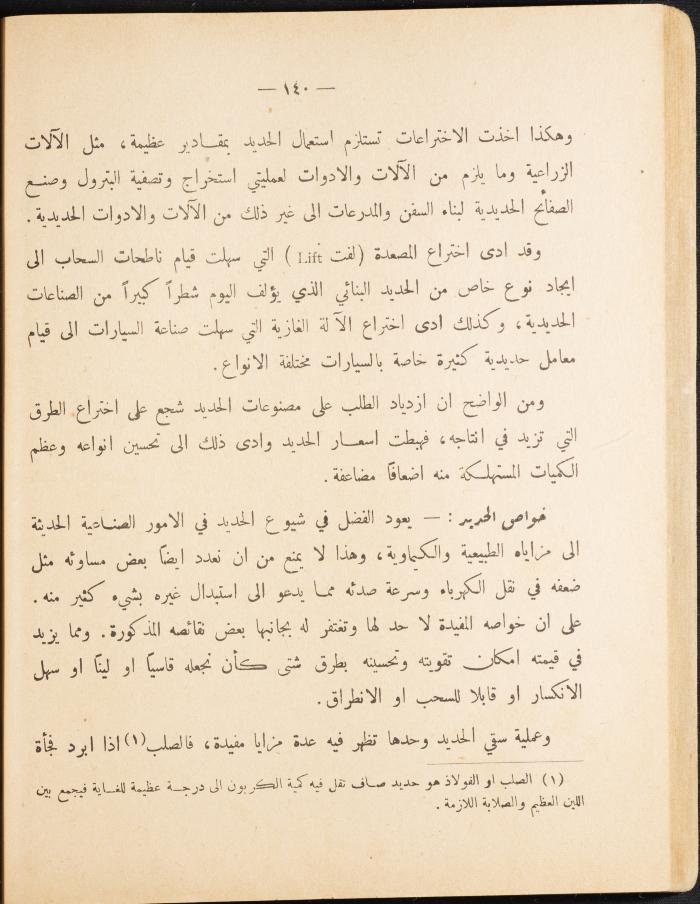 — ١٤٠ —
وهكذا اخذت الاختراعات تستلزم استعمال الحديد بمقادير عظيمة، مثل الآلات
الزراعية وما يلزم من الآلات والادوات لعمليتي استخراج وتصفية البترول وصنع
الصفائح الحديدية لبناء السفن والمدرعات الى غير ذلك من الآلات والادوات الحديدية.
وقد ادى اختراع المصعدة (لفت Lift) التي سهلت قيام ناطحات السحاب الى
ايجاد نوع خاص من الحديد البنائي الذي يؤلف اليوم شطراً كبيراً من الصناعات
الحديدية، وكذلك ادى اختراع الآلة الغازية التي سهلت صناعة السيارات الى قيام
معامل حديدية كثيرة خاصة بالسيارات مختلفة الانواع.
ومن الواضح ان ازدياد الطلب على مصنوعات الحديد شجع على اختراع الطرق
التي تزيد في انتاجه، فهبطت اسعار الحديد وادى ذلك الى تحسين انواعه وعظم
الكميات المستهلكة منه اضعافاً مضاعفة.
خواص الحديد : — يعود الفضل في شيوع الحديد في الامور الصناعية الحديثة
الى مزاياه الطبيعية والكيماوية، وهذا لا يمنع من ان نعدد ايضاً بعض مساوئه مثل
ضعفه في نقل الكهرباء وسرعة صدئه مما يدعو الى استبدال غيره بشيء كثير منه.
على ان خواصه المفيدة لا حد لها وتغتفر له بجانبها بعض نقائصه المذكورة. ومما يزيد
في قيمته امكان تقويته وتحسينه بطرق شتى كأن نجعله قاسياً او ليناً او سهل
الانكسار او قابلا للسحب او الانطراق.
وعملية سقي الحديد وحدها تظهر فيه عدة مزايا مفيدة، فالصلب(١) اذا ابرد فجأة
(١) الصلب او الفولاذ هو حديد صاف تقل فيه كمية الكربون الى درجة عظيمة للغاية فيجمع بين
اللين العظيم والصلابة اللازمة.